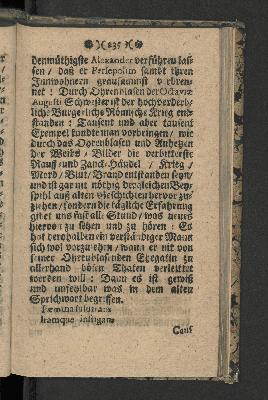 )( 235 )(
denmüthigste Alexander verführen las-
sen / daß er Persepolim sambt ihren
Innwohnern grausammist verbren-
net: Durch Ohrenblasen der Octaviæ
Augusti Schwester ist der hochverderb-
liche Burgerliche Römische Krieg ent-
standen: Tausend und aber tausent
Exempel kundte man vorbringen / wie
durch das Ohrenblasen und Auhetzen
der Weibs / Bilder die verbitterste
Rauff- und Zanck-Händel / Krieg /
Mord / Blut / Brand entstanden seyn /
und ist gar nit nöthig dergleichen Bey-
spihl auß alten Geschichten hervor zu-
ziehen / sondern die tägliche Erfahrung
gibet uns fast all Stund / was neues
hiervon zu sehen und zu hören: Es
hat derohalben ein verständiger Mann
sich wol vorzusehen / wann er nit von
seiner Ohrenblasenden Ehegatin zu
allerhand bösen Thaten verleittet
werden will: Dann es ist gewiß
und unfehlbar was in dem alten
Sprichwort begriffen.
Fœmina
Iramque instigans